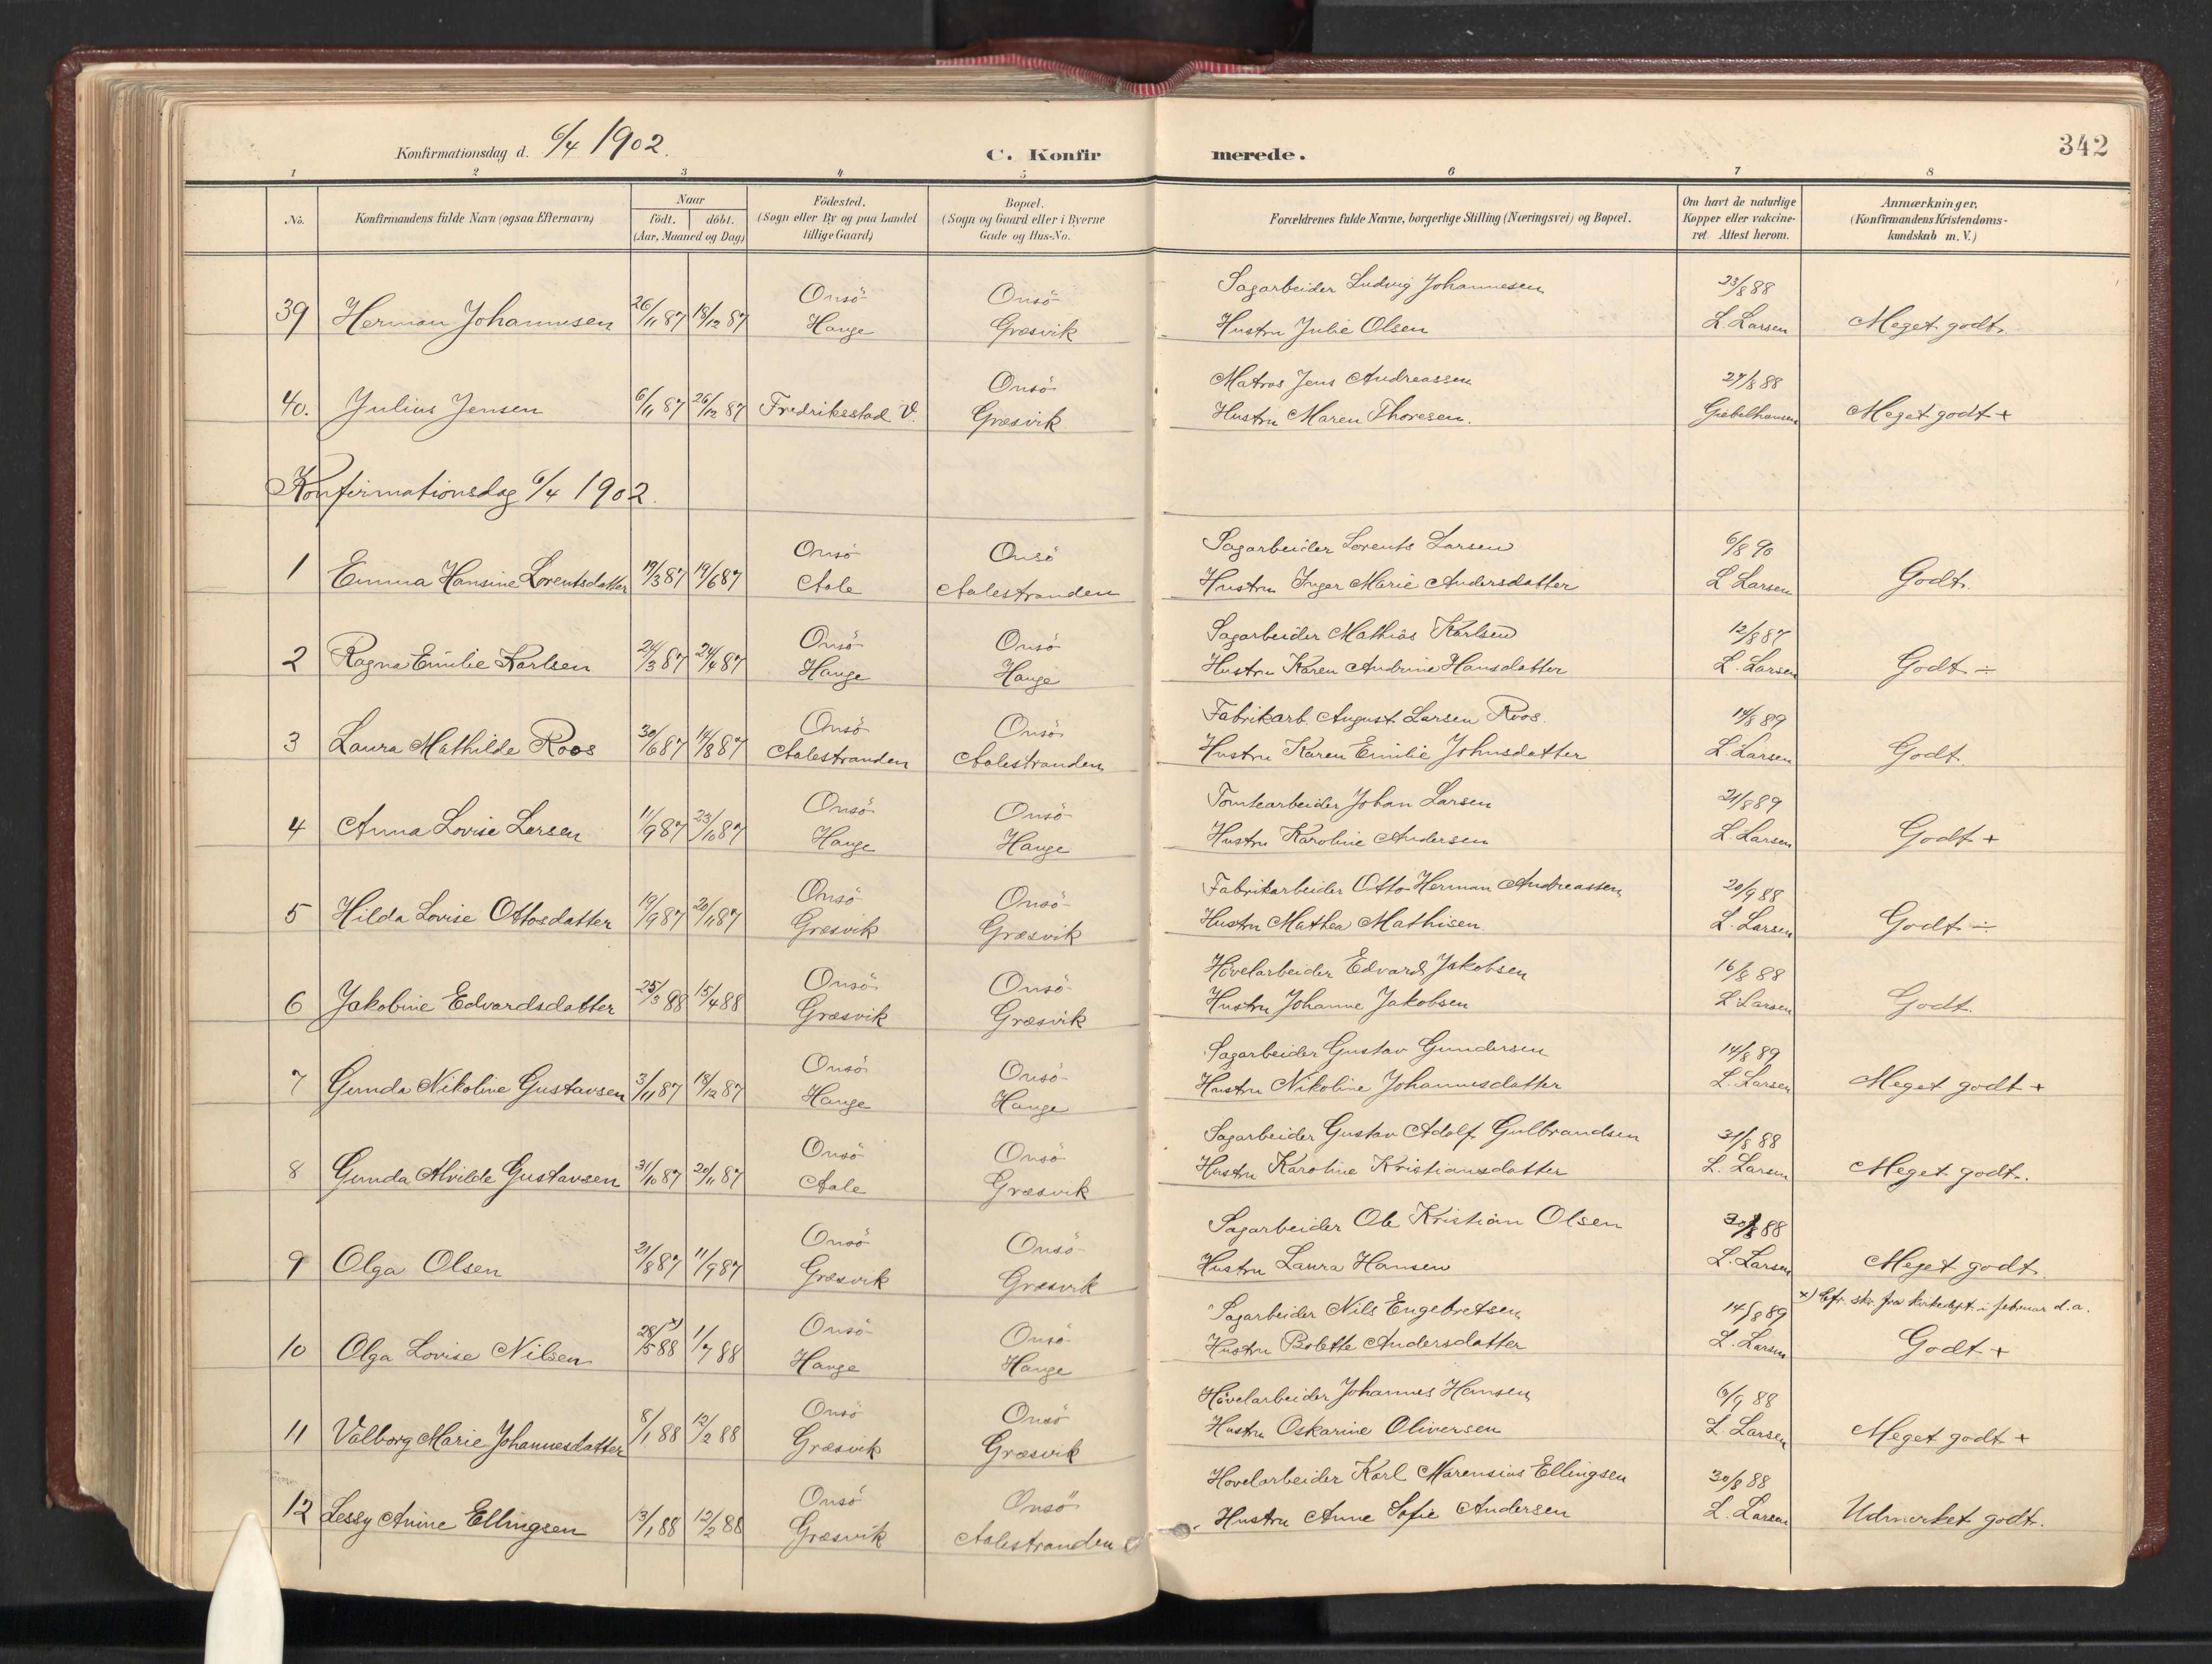 Konfirmationsdag d. 6/4 1902.
C. Konfirmerede.
342
1 2 3 4 5 6 7 8
No. Konfirmandens fulde Navn (ogsaa Efternavn) Naar födt. döbt. (Aar, Maaned og Dag) Födested. (Sogn eller By og paa Landet tillige Gaard) Bopæl. (Sogn og Gaard eller i Byerne Gade og Hus-No. Forældrenes fulde Navne, borgerlige Stilling (Næringsvei) og Bopæl. Om havt de naturlige Kopper eller vakcineret. Attest herom. Anmærkninger, (Konfirmandens Kristendomskundskab m. V.)
Onsö Onsö Sagarbeider Ludvig Johannesen 23/8 88
39 Herman Johannesen 26/11 87 18/12 87 Hauge Græsvik Hustru Julie Olsen L. Larsen Meget godt.
Onsö Matros Jens Andreassen 27/8 88
40. Julius Jensen 6/11 87 26/12 87 Fredriksstad V. Græsvik Hustru Maren Thoresen. Giebelhausen Meget godt +
Konfirmationsdag 6/4 1902.
Onsö Onsö Sagarbeider Lorents Larsen 6/8 90
1 Emma Hansine Lorentsdatter 19/3 87 19/6 87 Aale Aalestranden Hustru Inger Marie Andersdatter L Larsen Godt.
Onsö Onsö Sagarbeider Mathias Karlsen 12/8 87
2 Ragna Emilie Karlsen 24/3 87 24/4 87 Hauge Hauge Hustru Karen Andrine Hansdatter L. Larsen Godt ÷
Onsö Onsö Fabrikarb. August Larsen Roos. 14/8 89
3 Laura Mathilde Roos 30/6 87 14/8 87 Aalestranden Aalestranden Hustru Karen Emilie Johnsdatter L Larsen Godt.
Onsö Onsö Tomtearbeider Johan Larsen 21/8 89
4 Anna Lovise Larsen 11/9 87 23/10 87 Hauge Hauge Hustru Karoline Andersen L. Larsen Godt +
Onsö Onsö Fabrikarbeider Otto Herman Andreassen 20/9 88
5 Hilda Lovise Ottosdatter 19/9 87 20/11 87 Græsvik Græsvik Hustru Mathea Mathisen. L. Larsen Godt ÷
Onsö Onsö Hövelarbeider Edvard Jakobsen 16/8 88
6 Jakobine Edvardsdatter 25/3 88 15/4 88 Græsvik Græsvik Hustru Johanne Jakobsen L. Larsen Godt.
Onsö Onsö Sagarbeider Gustav Gundersen 14/8 89
7 Gunda Nikoline Gustavsen 3/11 87 18/12 87 Hauge Hauge Hustru Nikoline Johannesdatter L. Larsen Meget godt +
Onsö Onsö Sagarbeider Gustav Adolf Gulbrandsen 31/8 88
8 Gunda Alvilde Gustavsen 31/10 87 20/11 87 Aale Græsvik Hustru Karoline Kristiansdatter L. Larsen Meget godt.
Onsö Onsö Sagarbeider Ole Kristian Olsen 30/8 88
9 Olga Olsen 21/8 87 11/9 87 Græsvik Græsvik Hustru Laura Hansen L. Larsen Meget godt.
Onsö Onsö Sagarbeider Nils Engebretsen 14/8 89 x) Cfr. skr. fra kirkedept. i februar d.a.
10 Olga Lovise Nilsen 28/5 88 x) 1/7 88 Hauge Hauge Hustru Bolette Andersdatter L. Larsen Godt +
Onsö Onsö Hövelarbeider Johannes Hansen 6/9 88
11 Valborg Marie Johannesdatter 8/1 88 12/2 88 Græsvik Græsvik Hustru Oskarine Oliversen L. Larsen Meget godt +
Onsö Onsö Hovelarbeider Karl Marensius Ellingsen 30/8 88
12 Lessy Anine Ellingsen 13/1 88 12/2 88 Græsvik Aalestranden Hustru Anne Sofie Andersen L. Larsen Udmerket godt.